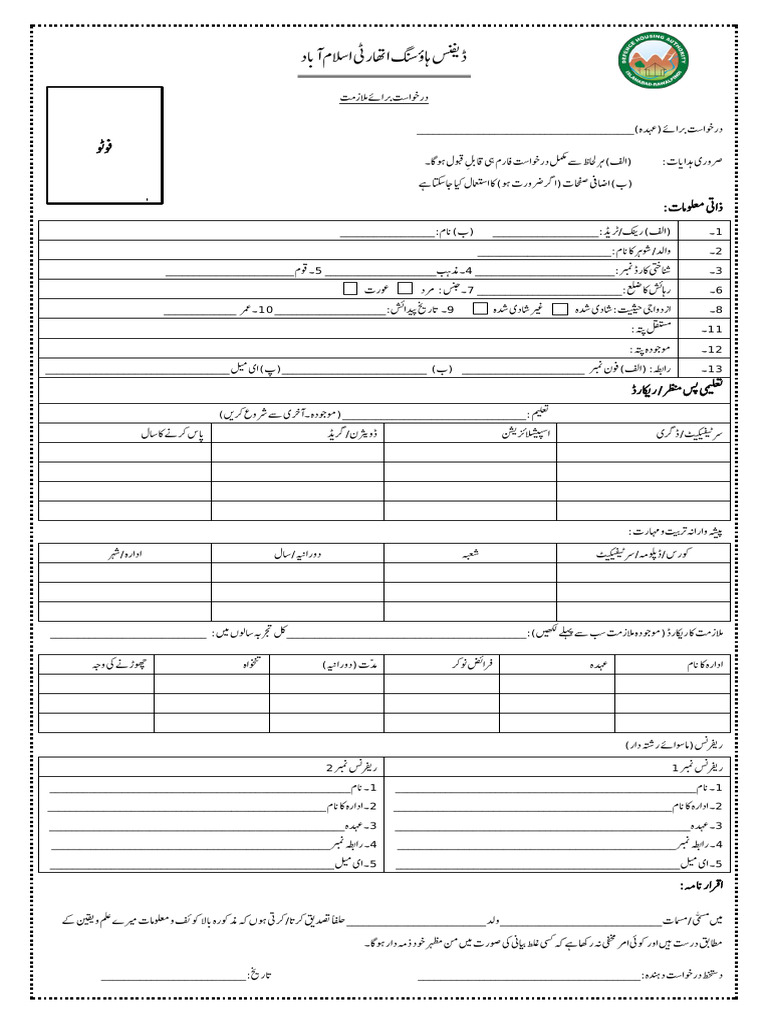 ڈیفنس ہاؤسنگ اتھارٹی اسلام آباد
DEFENCE HOUSING AUTHORITY
ISLAMABAD-RAWALPINDI
درخواست برائے ملازمت
فوٹو
درخواست برائے (عہدہ)____________________
ضروری ہدایات : (الف) ہر لحاظ سے مکمل درخواست فارم ہی قابلِ قبول ہوگا۔
(ب) اضافی صفحات (اگر ضرورت ہو) کا استعمال کیا جاسکتا ہے
ذاتی معلومات :
1۔ (الف) رینک/ٹریڈ :____________________ (ب) نام :____________________
2۔ والد/شوہر کا نام :____________________
3۔ شناختی کارڈ نمبر :____________________ 4۔ مذہب____________________ 5۔ قوم____________________
6۔ رہائش کا ضلع :____________________ 7۔ جنس : مرد ☐ عورت ☐
8۔ ازدواجی حیثیت : شادی شدہ ☐ غیر شادی شدہ ☐ 9۔ تاریخ پیدائش :____________________ 10۔ عمر ____________________
11۔ مستقل پتہ :
12۔ موجودہ پتہ :
13۔ رابطہ : (الف) فون نمبر ____________________ (ب) ____________________ (پ) ای میل____________________
تعلیمی پس منظر/ریکارڈ
تعلیم :____________________ (موجودہ۔ آخری سے شروع کریں)
سرٹیفیکیٹ/ڈگری اسپیشلائزیشن ڈویژن/گریڈ پاس کرنے کا سال
پیشہ وارانہ تربیت و مہارت :
کورس/ڈپلومہ/سرٹیفیکیٹ شعبہ دورانیہ/سال ادارہ/شہر
ملازمت کا ریکارڈ (موجودہ ملازمت سب سے پہلے لکھیں) :____________________ کل تجربہ سالوں میں : ____________________
ادارہ کا نام عہدہ فرائض نوکر مدّت (دورانیہ) تنخواہ چھوڑنے کی وجہ
ریفرنس (ماسوائے رشتہ دار)
ریفرنس نمبر 1 ریفرنس نمبر 2
1۔ نام____________________ 1۔ نام____________________
2۔ ادارہ کا نام____________________ 2۔ ادارہ کا نام____________________
3۔ عہدہ____________________ 3۔ عہدہ____________________
4۔ رابطہ نمبر____________________ 4۔ رابطہ نمبر____________________
5۔ ای میل____________________ 5۔ ای میل____________________
اقرار نامہ :
میں مسمّٰی/مسمات____________________ ولد____________________ حلفاً تصدیق کرتا/کرتی ہوں کہ مذکورہ بالا کوائف و معلومات میرے علم و یقین کے
مطابق درست ہیں اور کوئی امر مخفی نہ رکھا ہے کہ کسی غلط بیانی کی صورت میں من مظہر خود ذمہ دار ہوگا۔
دستخط درخواست دہندہ :____________________ تاریخ :____________________